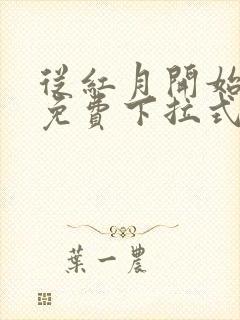 從紅月開始
免費下拉式
葉一農